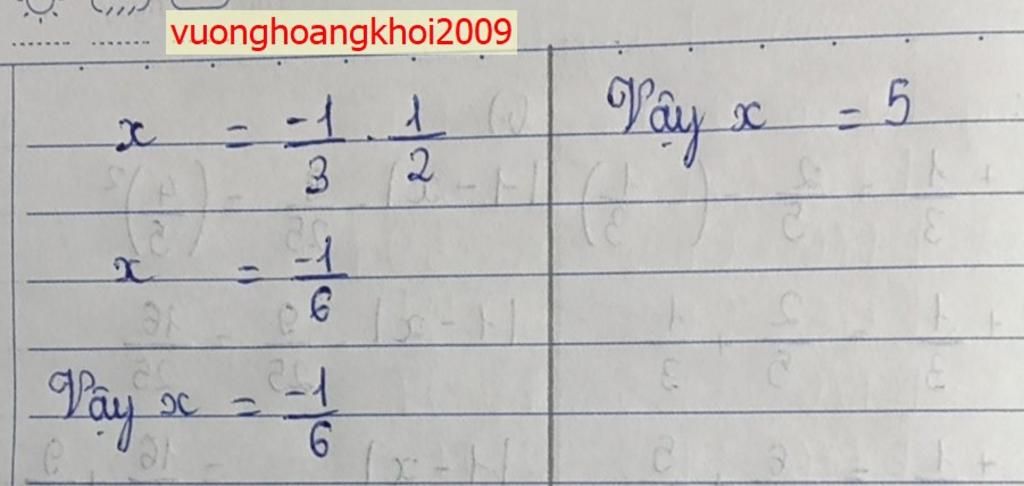 vuonghoangkhoi2009
x = -1/3 . 1/2
x = -1/6
Vậy x = -1/6
Vậy x = 5